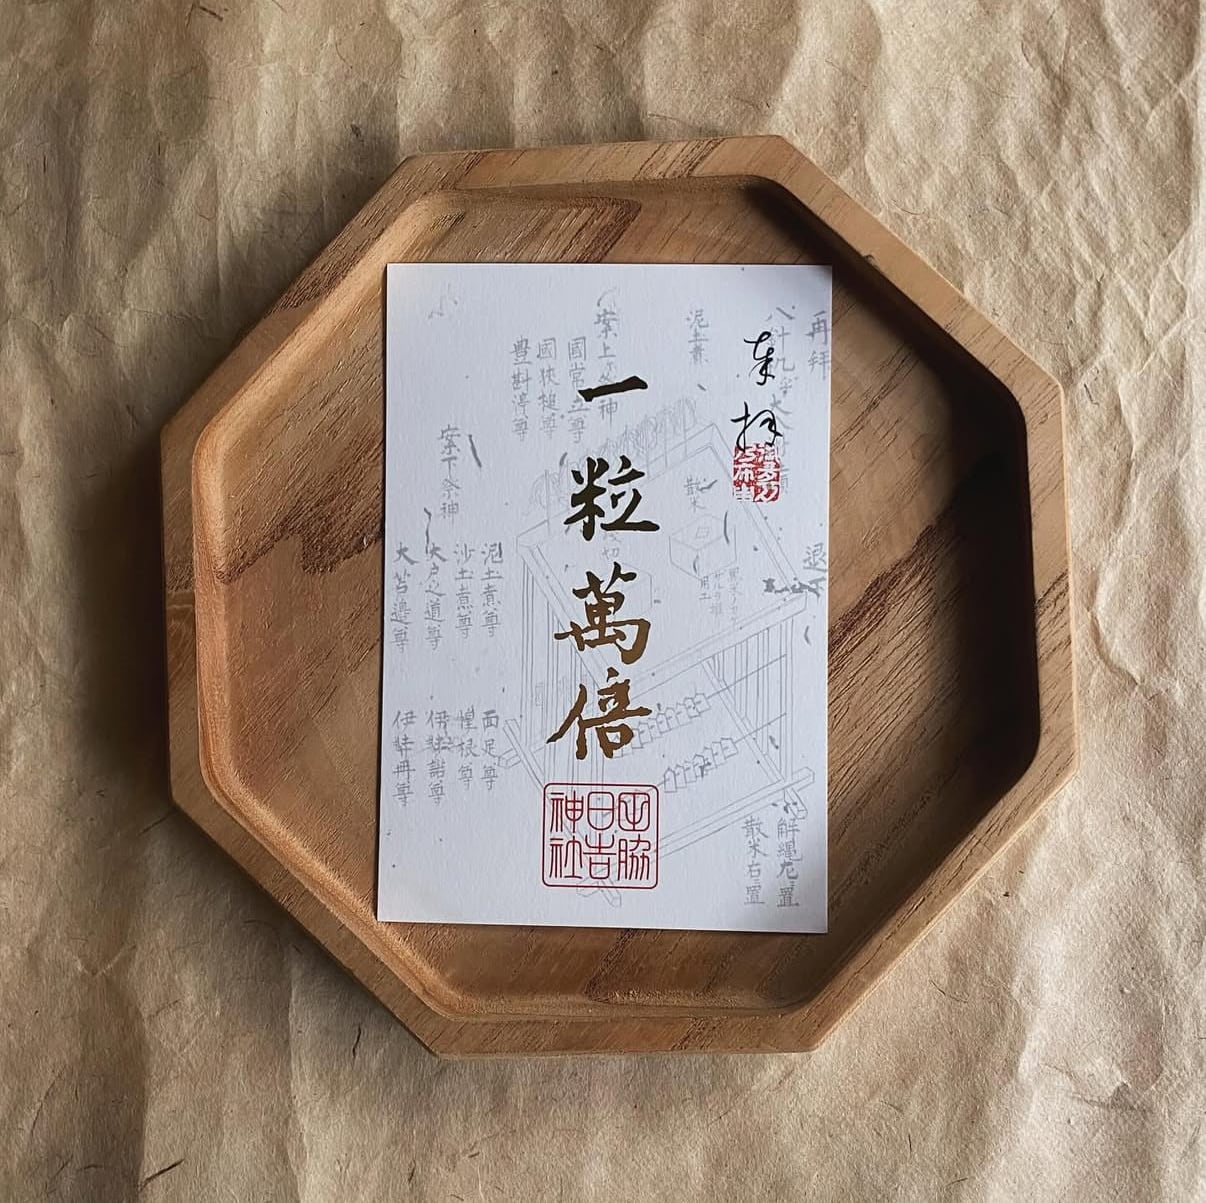 奉拝
一粒萬倍
山脇
日吉
神社
再拝
泥土煮
案上
神
國常立尊
國狭槌尊
豊斟渟尊
案下祭神
泥土煮尊
沙土煮尊
大戸之道尊
大苫邉尊
面足尊
惶根尊
伊弉諾尊
伊弉冊尊
散米
解縄左置
散米右置